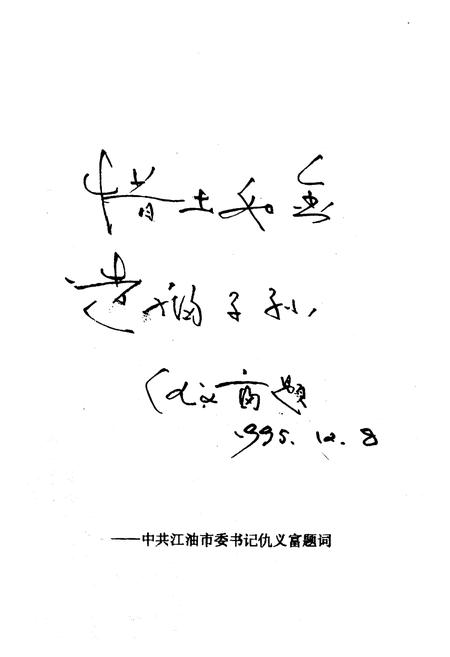 惜土如金
造福子孙，
仇义富题
1995.12.8
——中共江油市委书记仇义富题词